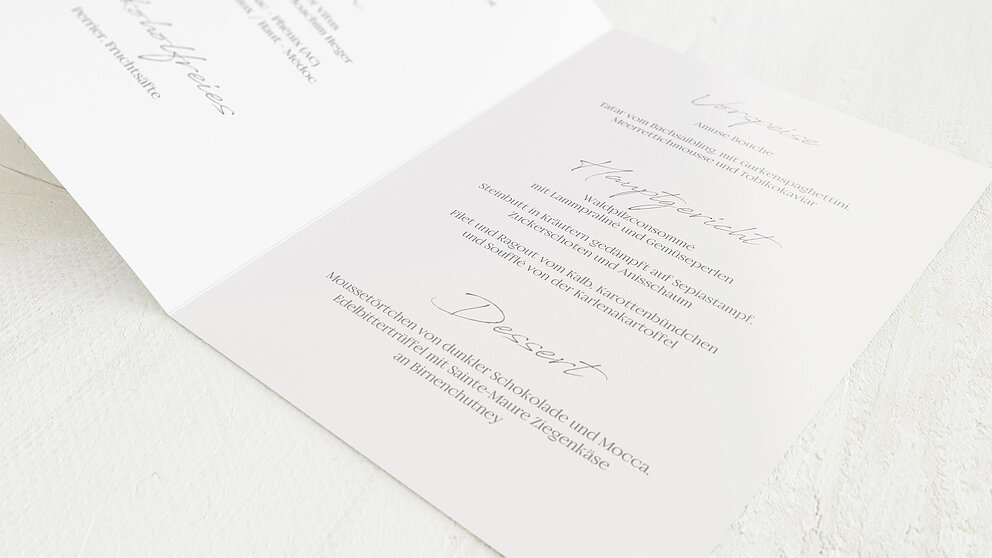 Joachim Heger
Phenix (AC)
/ Haut - Médoc
Perrier, Fruchtsäfte
Vorspeise
Amuse Bouche
Tatar vom Bachsaibling, mit Gurkenspaghettini,
Meerrettichmousse und Tobikokaviar
Hauptgericht
Waldpilzconsommé
mit Lammpraliné und Gemüseperlen
Steinbutt in Kräutern gedämpft auf Sepiastampf,
Zuckerschoten und Anisschaum
Filet und Ragout vom Kalb, Karottenbündchen
und Soufflé von der Karlenakartoffel
Dessert
Moussetörtchen von dunkler Schokolade und Mocca,
Edelbittertrüffel mit Sainte-Maure Ziegenkäse
an Birnenchutney